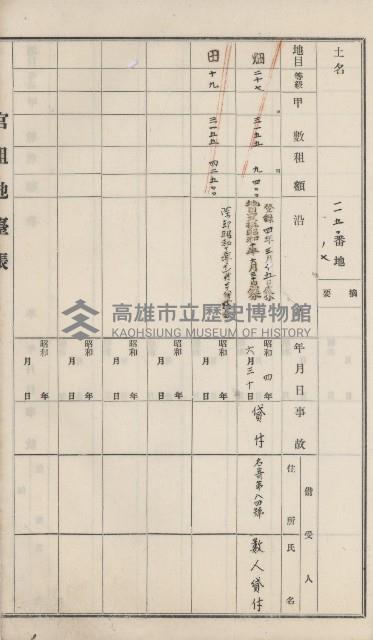 土名
一一五〇番地
ノ七
摘要
地目 等級 甲數 租額 沿 年月日 事故 借受人 住所 氏名
畑 二十七 三一五五 九四〇
登錄 四年三月 日登錄
地目變換昭和 年六月 日登錄
昭和 四年 六月三十日
貸付
名寄第八四號
數人貸付
田 十九 三一五五 四二五〇
除却昭和十 年
昭和 年 月 日
昭和 年 月 日
昭和 年 月 日
昭和 年 月 日
昭和 年 月 日
官租地臺帳
高雄市立歷史博物館
KAOHSIUNG MUSEUM OF HISTORY